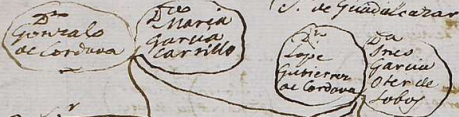 Dn
Gonzalo
de Cordova
Da
Maria
Garcia
Carrillo
S. de Guadalcazar
Dn
Lope
Gutierrez
de Cordova
Da
Ines
Garcia
Oter de
Lobos